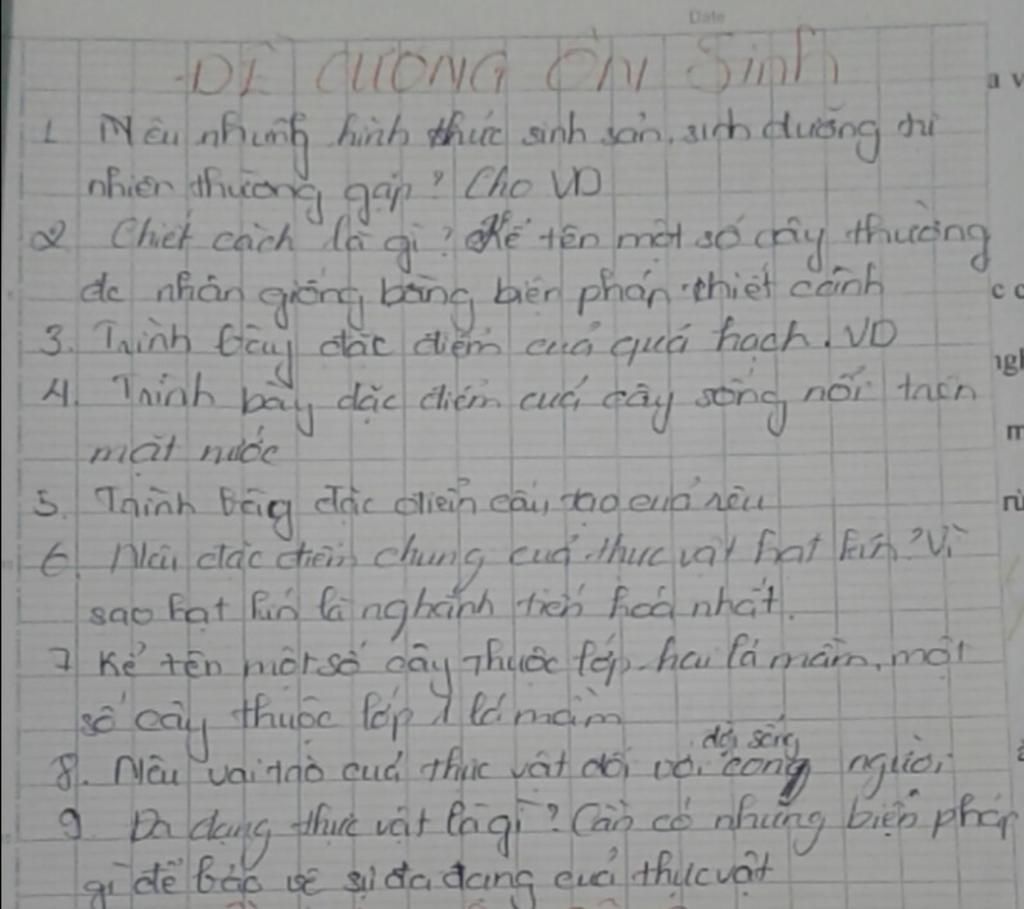 Date
ĐỀ CƯƠNG ÔN Sinh
1 Nêu những hình thức sinh sản, sinh dưỡng tự
nhiên thường gặp? Cho VD
2 Chiết cách là gì? Kể tên một số cây thường
đc nhân giống bằng biện pháp thiết cành
3. Trình bày đặc điểm cuả quả hạch. VD
4. Trình bày đặc điểm cuả cây sống nổi trên
mặt nước
5. Trình bày đặc điểm cấu tạo cuả rêu
6. Nêu đặc điểm chung cuả thực vật hạt kín? Vì
sao hạt kín là nghành tiến hoá nhất.
7 Kể tên một số cây thuộc lớp hai lá mầm, một
số cây thuộc lớp 1 lá mầm
đời sống
8. Nêu vai trò cuả thực vật đối với cong người
9 Đa dạng thực vật là gì? Cần có những biện pháp
gì để bảo vệ sự đa dạng cuả thực vật